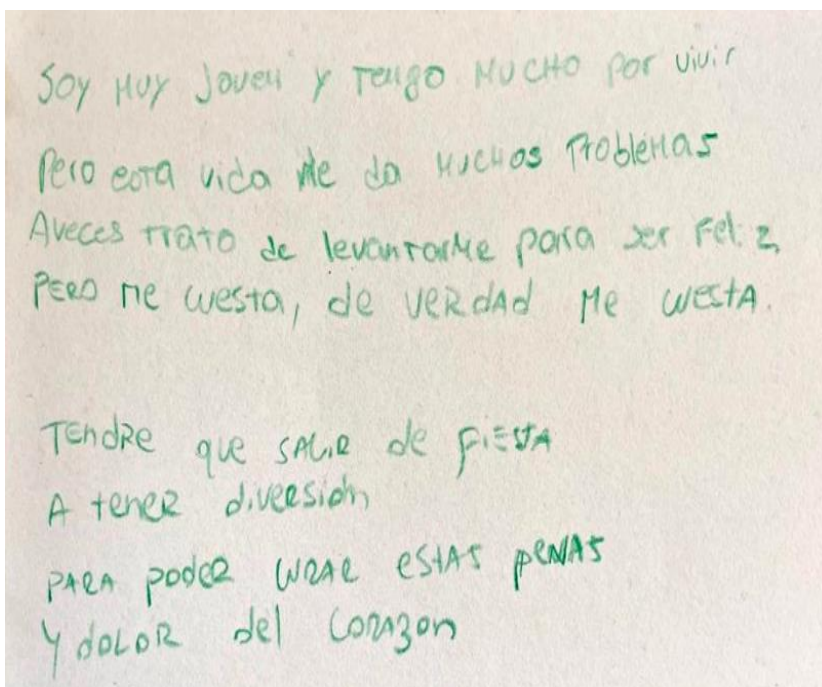 Soy muy joven y tengo mucho por vivir
Pero esta vida me da muchos problemas
Aveces trato de levantarme para ser feliz,
PERO me cuesta, de VERdAd Me cuestA.
TEndRE que SALiR de FiEstA
A tenER diveRsion
PARA podER cuRAR EstAs pENAS
Y doLoR del CoRAzon